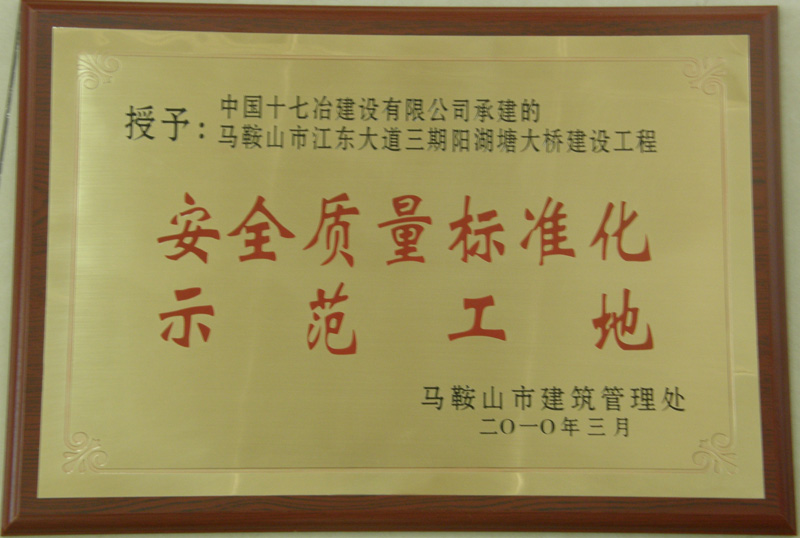 授予：
中国十七冶建设有限公司承建的
马鞍山市江东大道三期阳湖塘大桥建设工程
安全质量标准化
示范工地
马鞍山市建筑管理处
二〇一〇年三月